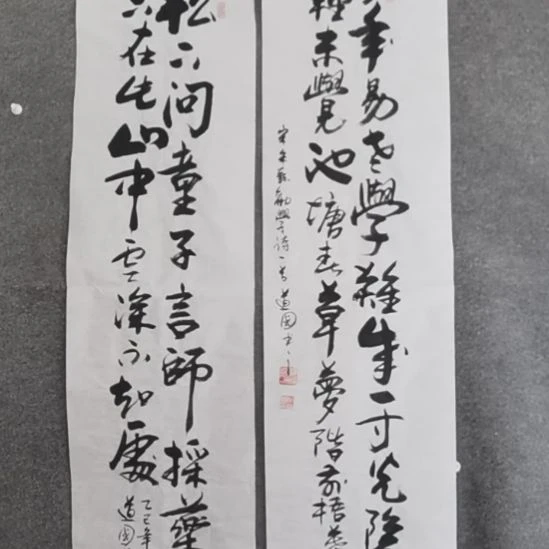 年易老學難成一寸光陰
輕未覺池塘春草夢階前梧葉
宋朱熹勸學詩一首道國书
松下問童子言師採藥
只在此山中雲深不知處
乙巳年
道國